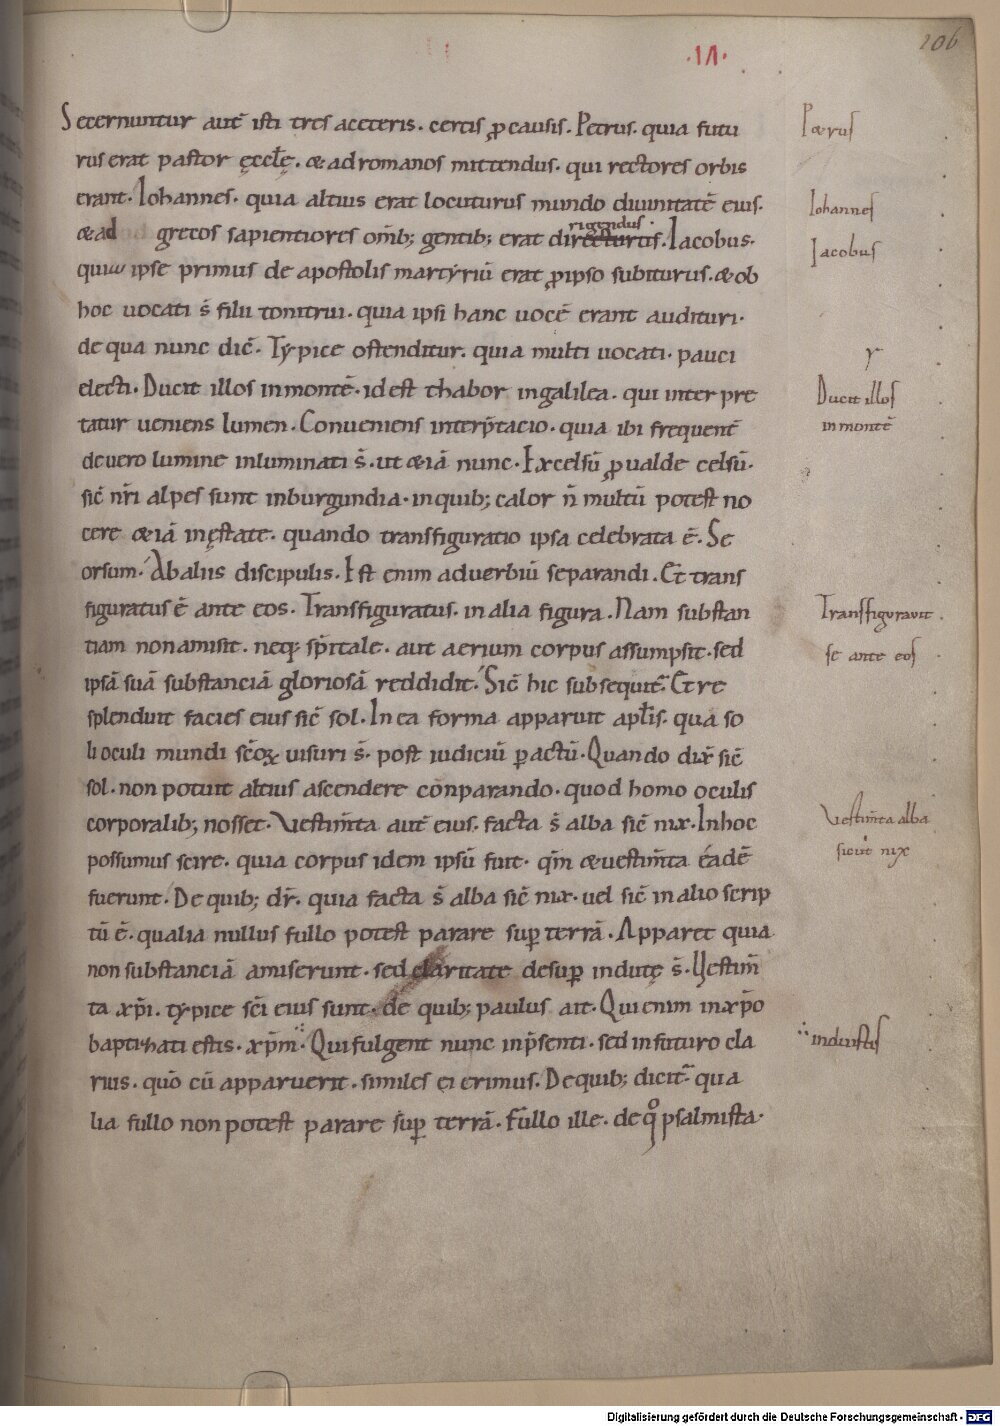 ·IΛ·
206
Secernuntur autē isti tres aceteris. certis ꝓcausis. Petrus. quia futu
rus erat pastor ęcclę. & ad romanos mittendus. qui rectores orbis
erant. Iohannes. quia altius erat locuturus mundo diuinitatē eius.
& ad grecos sapientiores omīb; gentib; erat directurus. Iacobus.
rigendus.
quia ipse primus de apostolis martyriū erat ꝓipso subiturus. & ob
hoc uocati s̄ filii tonitrui. quia ipsi hanc uocē erant audituri.
de qua nunc dic̄. Typice ostenditur. quia multi uocati. pauci
electi. Ducit illos inmontē. id est thabor ingalilea. qui inter pre
tatur ueniens lumen. Conueniens interp̄tacio. quia ibi frequent̄
deuero lumine inluminati s̄. ut &iā nunc. Excelsū ꝓualde celsū.
sic̄ nr̄i alpes sunt inburgundia. inquib; calor n̄ multū potest no
cere &iā inęstate. quando transfiguratio ipsa celebrata ē. Se
orsum. Abaliis discipulis. Est enim aduerbiū separandi. Et trans
figuratus ē ante eos. Transfiguratus. in alia figura. Nam substan
tiam non amisit. neq; sp̄itale. aut aerium corpus assumpsit. sed
ipsā suā substanciā gloriosā reddidit. Sic̄ hic subsequit̄. Et re
splenduit facies eius sic̄ sol. In ea forma apparuit apl̄is. qua so
li oculi mundi sc̄oꝝ uisuri s̄. post iudiciū ꝑactū. Quando dix̄ sic̄
sol. non potuit altius ascendere conparando. quod homo oculis
corporalib; nosset. Vestim̄ta autē eius. facta s̄ alba sic̄ nix. Inhoc
possumus scire. quia corpus idem ipsū fuit. qm̄ &uestim̄ta eadē
fuerunt. De quib; dr̄. quia facta s̄ alba sic̄ nix. uel sic̄ in alio scrip
tū ē. qualia nullus fullo potest parare suꝑ terrā. Apparet quia
non substanciā amiserunt. sed claritate desuꝑ indutę s̄. Vestim̄
ta xp̄i. typice sc̄i eius sunt. de quib; paulus ait. Qui enim inxp̄o
baptizati estis. xp̄m. Qui fulgent nunc inp̄senti. sed infuturo cla
rius. quō cū apparuerit. similes ei erimus. De quib; dicit̄. qua
lia fullo non potest parare suꝑ terrā. Fullo ille. de qͦ psalmista.
P&rus
Iohannes
Iacobus
Ducit illos
in montē
Transfigurauit
se ante eos
Vestim̄ta alba
sicut nix
induistis
Digitalisierung gefördert durch die Deutsche Forschungsgemeinschaft - DFG